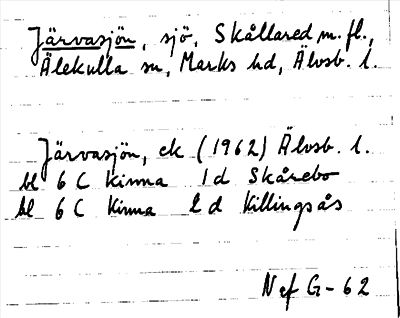 Järvasjön, sjö, Skållared m. fl.,
Älekulla sn, Marks hd, Älvsb. l.
Järvasjön, ek (1962) Älvsb. l.
bl 6 C Kinna 1 d Skårebo
bl 6 C Kinna 2 d Killingsås
N ef G-62